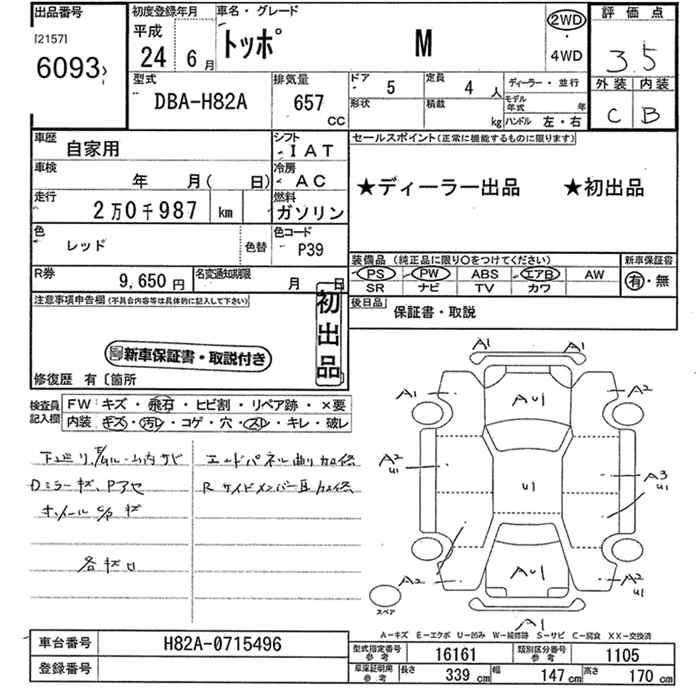 出品番号
[2157]
6093
初度登録年月
平成
24 6月
車名・グレード
トッポ M
2WD
・
4WD
評価点
3.5
外装 内装
C B
型式
DBA-H82A
排気量
657
CC
ドア
5
定員
4人
形状
積載
kg
ディーラー・並行
モデル年式 年
ハンドル 左・右
車歴
自家用
シフト
IAT
車検
年 月( 日)
冷房
AC
走行
2万0千987 km
燃料
ガソリン
色
レッド
色替
色コード
P39
R券
9,650円
名変通知期限
月 日
セールスポイント(正常に機能するものに限ります)
★ディーラー出品 ★初出品
装備品 (純正品に限り〇をつけてください)
新車保証書
PS PW ABS エアB AW
SR ナビ TV カワ
有・無
後日品
保証書・取説
注意事項申告欄(不具合内容等は具体的に記入して下さい)
初出品
新車保証書・取説付き
修復歴 有〔箇所
検査員記入欄
FW キズ・飛石・ヒビ割・リペア跡・×要
内装 キズ・汚レ・コゲ・穴・スレ・キレ・破レ
エンドパネル曲り
Dミラーキズ、Pアセ
各キズ凹
A1 A1
A1 AU1 A2
A2 U1 U1 A3 U1
A2 AU1 A2 U1
A1
スペア
A-キズ E-エクボ U-凹み W-補修跡 S-サビ C-腐食 XX-交換済
車台番号
H82A-0715496
登録番号
型式指定番号 参考
16161
類別区分番号 参考
1105
車庫証明用 参考
長さ 339 cm 幅 147 cm 高さ 170 cm